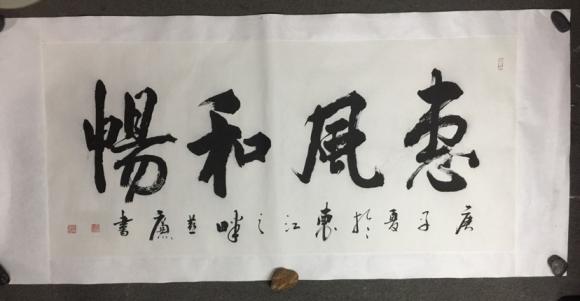 惠風和暢
庚子夏於東江之畔廉書